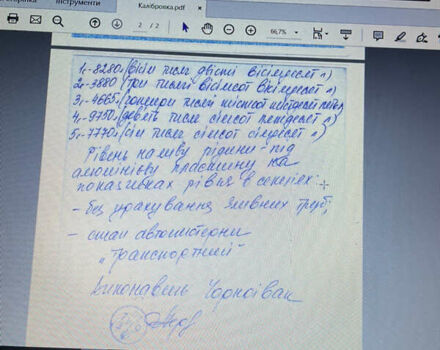 сторінка Інструменти
Калібровка.pdf
2 / 2
66,7%
1.-8280л(вісім тисяч двісті вісімдесят л)
2.-3880 (три тисячі вісімсот вісімдесят л)
3.-4665л(чотири тисячі шістсот шістдесят п'ять л)
4.-9750л(дев'ять тисяч сімсот пятдесят л)
5.-7770л(сім тисяч сімсот сімдесят л)
Рівень наливу рідини під
алюмінієву пластину на
показчиках рівня в секціях:
- без урахування зливних труб;
- стан автоцистерни
„Транспортний"
Виконавець Чорноіван